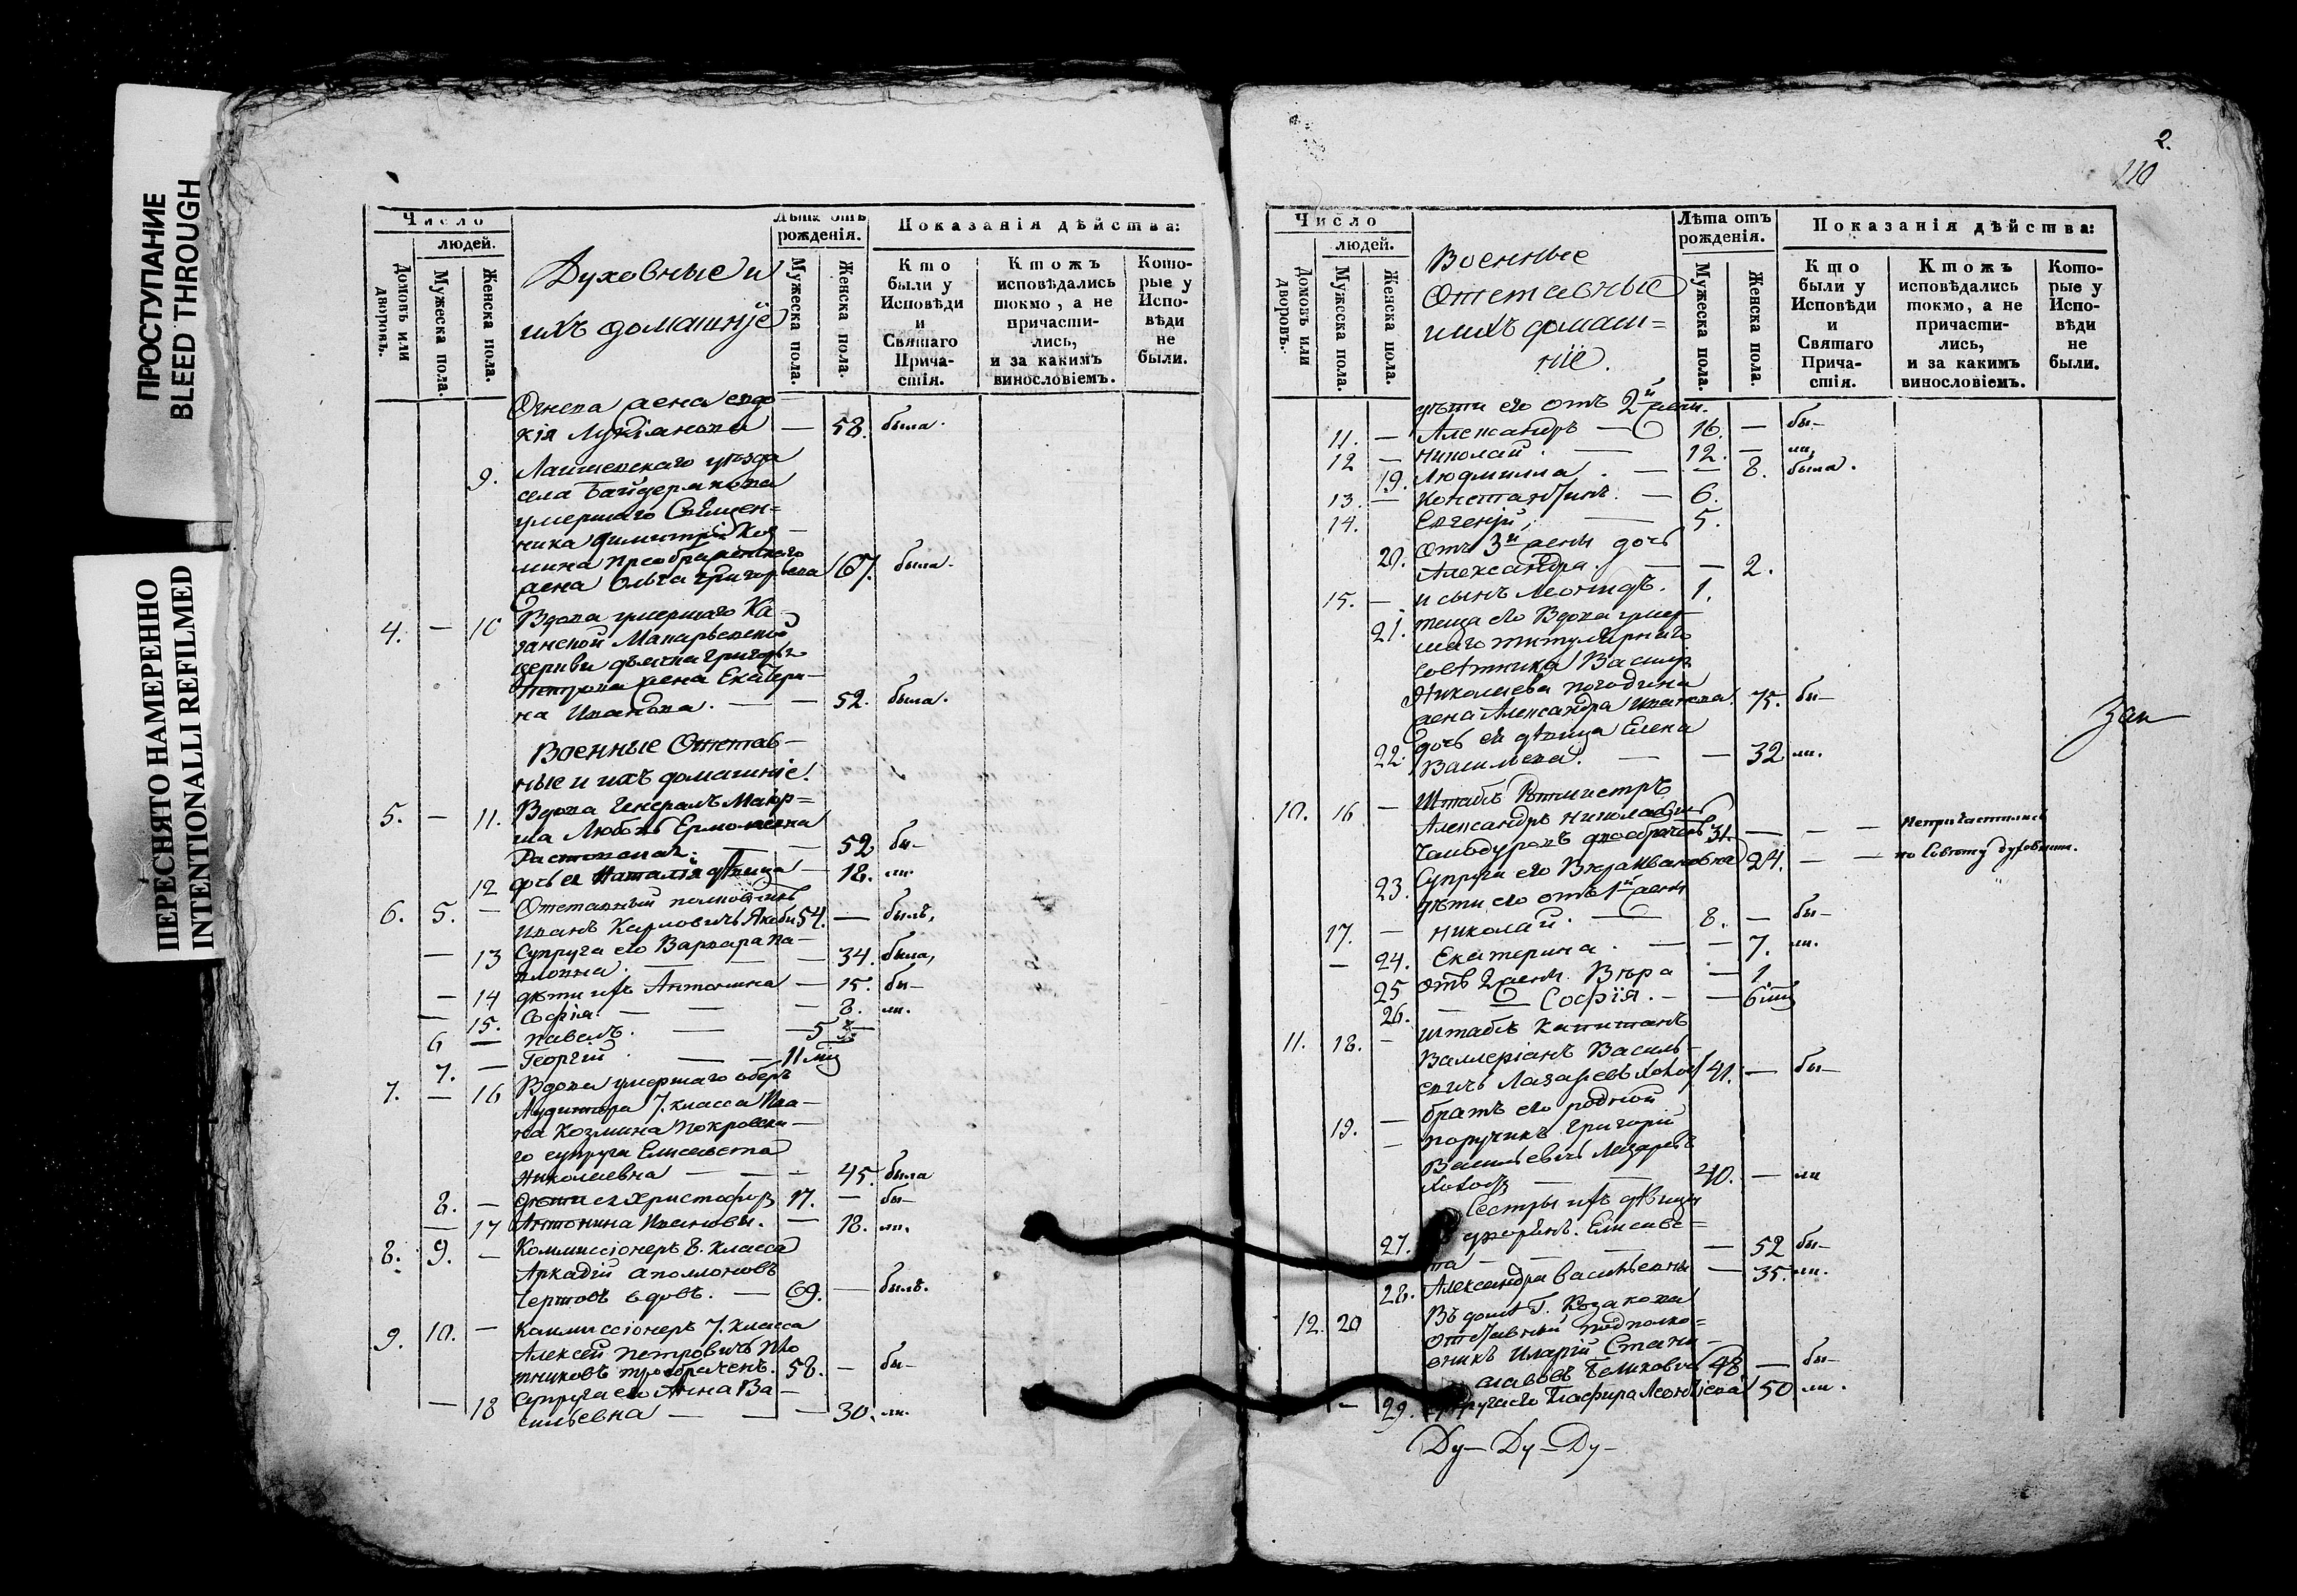 ПРОСТУПАНИЕ
BLEED THROUGH
ПЕРЕСНЯТО НАМЕРЕННО
INTENTIONALLI REFILMED
Число
людей.
Домовъ или дворовъ.
Мужеска пола.
Женска пола.
Духовные и
ихъ домашнїе
Лѣта отъ
рожденія.
Мужеска пола.
Женска пола.
Показанія дѣйства:
Кто
были у
Исповѣди
и
Святаго
Прича-
стія.
Ктожъ
исповѣдались
токмо, а не
причасти-
лись,
и за какимъ
винословіемъ.
Кото-
рые у
Испо-
вѣди
не
были.
жена Евдо-
кія Лукіанова — 58. была.
9. Лаишевскаго уѣзда
села
умершаго Священ-
ника Димитрія Коз-
мина Преображенскаго
жена Ольга Григорьева 67. была.
4. — 10 Вдова умершаго Ка-
занской Макарьевской
церкви дьячка Григорья
Петрова жена Екатери-
на Иванова. — — 52. была.
Военные Отстав-
ные и ихъ домашніе.
5. — 11. Вдова Генералъ Маіор-
ша Любовь Ермолаевна
— 52 бы-
12 дочь ея Наталія дѣвица — 18. ли.
6. 5. — Отставный полковникъ
Иванъ Карловичъ Якоби 54. — былъ,
— 13 Супруга его Варвара Па-
вловна. — — 34. была,
— 14 дѣти ихъ Антонина — 15. бы-
— 15. Софія. — — 8. ли.
6 — Павелъ. — — 5
7. — Георгій — — 11 мц
7. — 16 Вдова умершаго оберъ
Аудитора 7. класса Ива-
на Козмина Покровска-
го супруга Елисавета
Николаевна — — 45. была
8. — дѣти ея Христофоръ 17. — бы-
— 17 Антонина Ивановы. — 18. ли.
8. 9. — Коммиссіонеръ 8. класса
Аркадій Аполлоновъ
Чертовъ вдовъ. — 69. — былъ.
9. 10. — Коммиссіонеръ 7. класса
Алексей Петровичъ
троебраченъ. 58. — бы-
— 18 Супруга его Анна Ва-
сильевна — — — 30. ли.
2.
110
Число
людей.
Домовъ или дворовъ.
Мужеска пола.
Женска пола.
Военные
Отставные
и ихъ домаш-
ніе.
Лѣта отъ
рожденія.
Мужеска пола.
Женска пола.
Показанія дѣйства:
Кто
были у
Исповѣди
и
Святаго
Прича-
стія.
Ктожъ
исповѣдались
токмо, а не
причасти-
лись,
и за какимъ
винословіемъ.
Кото-
рые у
Испо-
вѣди
не
были.
дѣти его отъ 2й жены.
11. — Александръ — 16. — бы-
12 — Николай. — 12. — ли,
19. Людмилла. — — 8. была.
13. — Константинъ. — 6.
14. Евгеній, — 5.
20. Отъ 3й жены дочь
Александра. — — 2.
15. — и сынъ Леонидъ. 1.
21. теща его Вдова умер-
шаго титулярнаго
Советника Василья
Николаева Погодина
жена Александра Иванова. 75. бы-
22. дочь ея дѣвица Елена
Васильева. — — 32 ли.
Зак
10. 16 — Штабъ Ротмистръ
Александръ Николаевичъ
двообрачной 31. — — — Непричастились
23. Супруга его Вѣра Ивановна 24. — — по Совѣту духовнаго.
дѣти его отъ 1й жены
17. — Николай. — 8. — бы-
— 24. Екатерина. — — 7. ли.
25 отъ 2 жены Вѣра — 1.
26. — Софія. — — 6 мц
11. 18. — Штабсъ Капитанъ
Валлеріанъ Василь-
евичъ Лазаревъ 41. — бы-
19. — братъ его родной
— поручикъ Григорій
Васильевичъ Лазаревъ
— — 40. — ли
Сестры ихъ дѣвицы
27. Елисаве-
та — — — 52 бы-
28. Александра Васильевны — 35. ли.
12. 20 Въ домѣ Г. Козакова
Отставный подполко-
вникъ Иларій Стани-
славовъ 48 — бы-
— 29. супруга его Глафира Леонтіева 50 ли.
Ду— Ду— Ду—